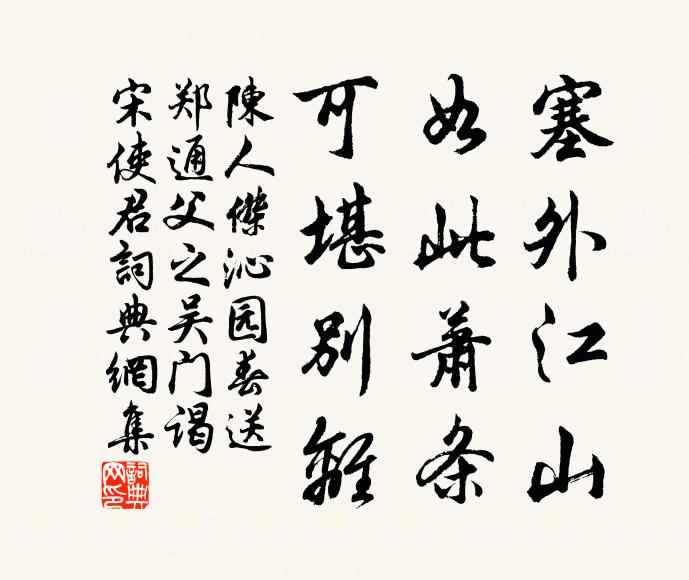 塞外江山
如此萧条
可堪别離
陳人傑沁园春送
郑通父之吴门谒
宋使君詞典網集
詞典网印